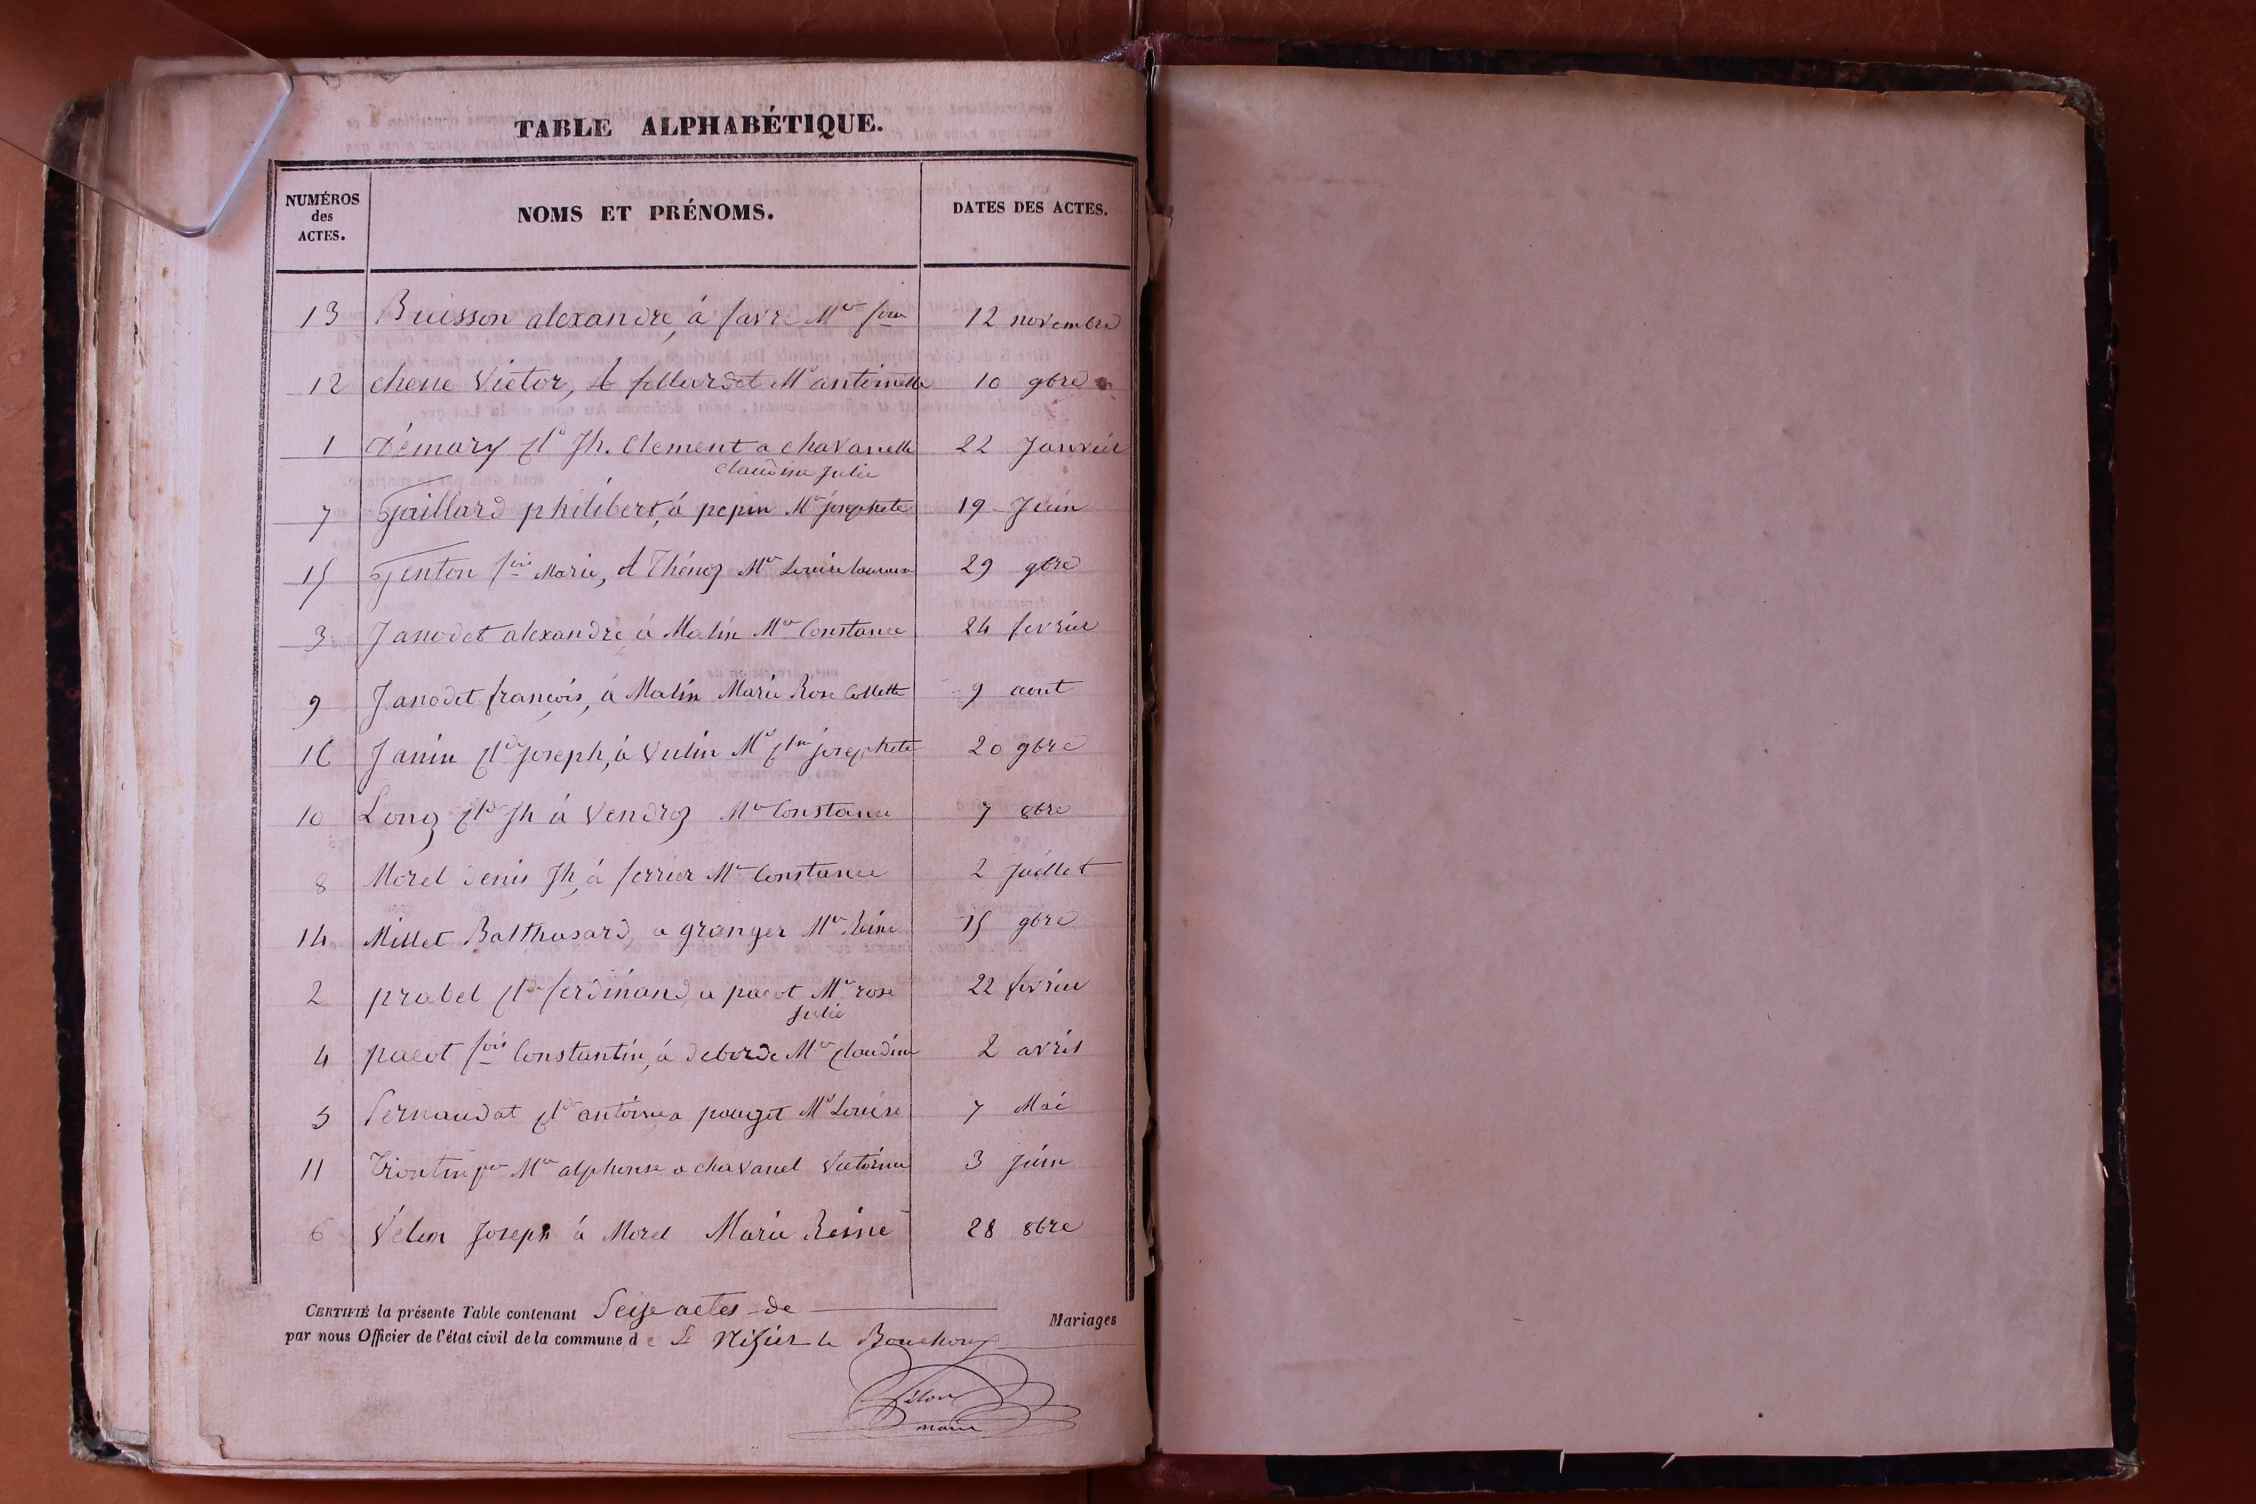 TABLE ALPHABÉTIQUE.
NUMÉROS des ACTES. NOMS ET PRÉNOMS. DATES DES ACTES.
13 Buisson alexandre, á favre Mie 12 novembre
12 chene Victor, A Mie antoinette 10 9bre
1 Démary Cl Jh. Clement a chavanelle 22 Janvier
claudine Julie
7 Gaillard philibert, á pepin Mie josephete 19 Juin
15 Genton fois Marie, A Thénoz Mie Louise 29 9bre
3 Janodet alexandre á Malin Mie Constance 24 fevrier
9 Janodet françois, á Malin Marie Rose Collette 9 aout
16 Janin Cl joseph, á Vulin Mie Cl josephete 20 9bre
10 Long Cl Jh á Vendroz Mie Constance 7 8bre
8 Morel Denis Jh, á ferrier Mie Constance 2 Juillet
14 Millet Balthasard, a granger Mie Reine 15 9bre
2 prabel Cl ferdinand a pacot Mie rose 22 fevrier
Julie
4 pacot fois Constantin, á deborde Mie Claudine 2 avril
5 Pernaudat Cl antoine a pouget Mie Louise 7 Mai
11 Mie alphonse a chavanel Victorine 3 juin
6 Vélon Joseph á Morel Marie Reine 28 8bre
CERTIFIÉ la présente Table contenant Seize actes de Mariages
par nous Officier de l'état civil de la commune de St Nizier le Bouchoux
Vélon
maire